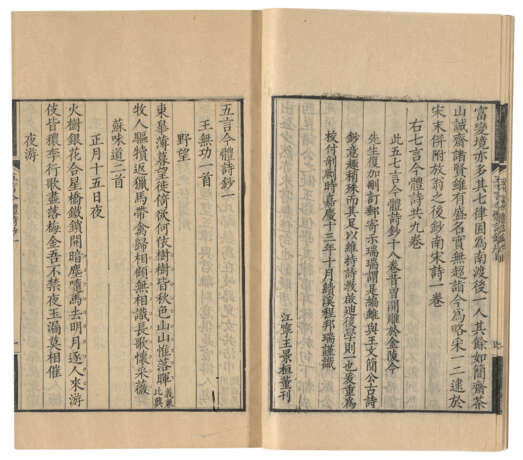 富變境亦多其七律固爲南渡後一人其餘如簡齋茶
山誠齋諸賢雖有盛名實無超詣今爲略宋一二逮於
宋末併附放翁之後鈔南宋詩一卷
右七言今體詩共九卷
此五七言今體詩鈔十八卷昔曾開雕於金陵今
先生復加刪訂郵寄示瑞瑞謂是編雖與王文簡公古詩
鈔意趣稍殊而其足以維持詩教啟迪後學則一也爰重爲
校付剞劂時嘉慶十三年十月績溪程邦瑞謹識
江寧王景桓董刊
五言今體詩鈔一
王無功一首
野望
東皋薄暮望徙倚欲何依樹樹皆秋色山山惟落暉義兼比興
牧人驅犢返獵馬帶禽歸相顧無相識長歌懷采薇
蘇味道一首
正月十五日夜
火樹銀花合星橋鐵鎖開暗塵隨馬去明月逐人來游
伎皆穠李行歌盡落梅金吾不禁夜玉漏莫相催
夜游